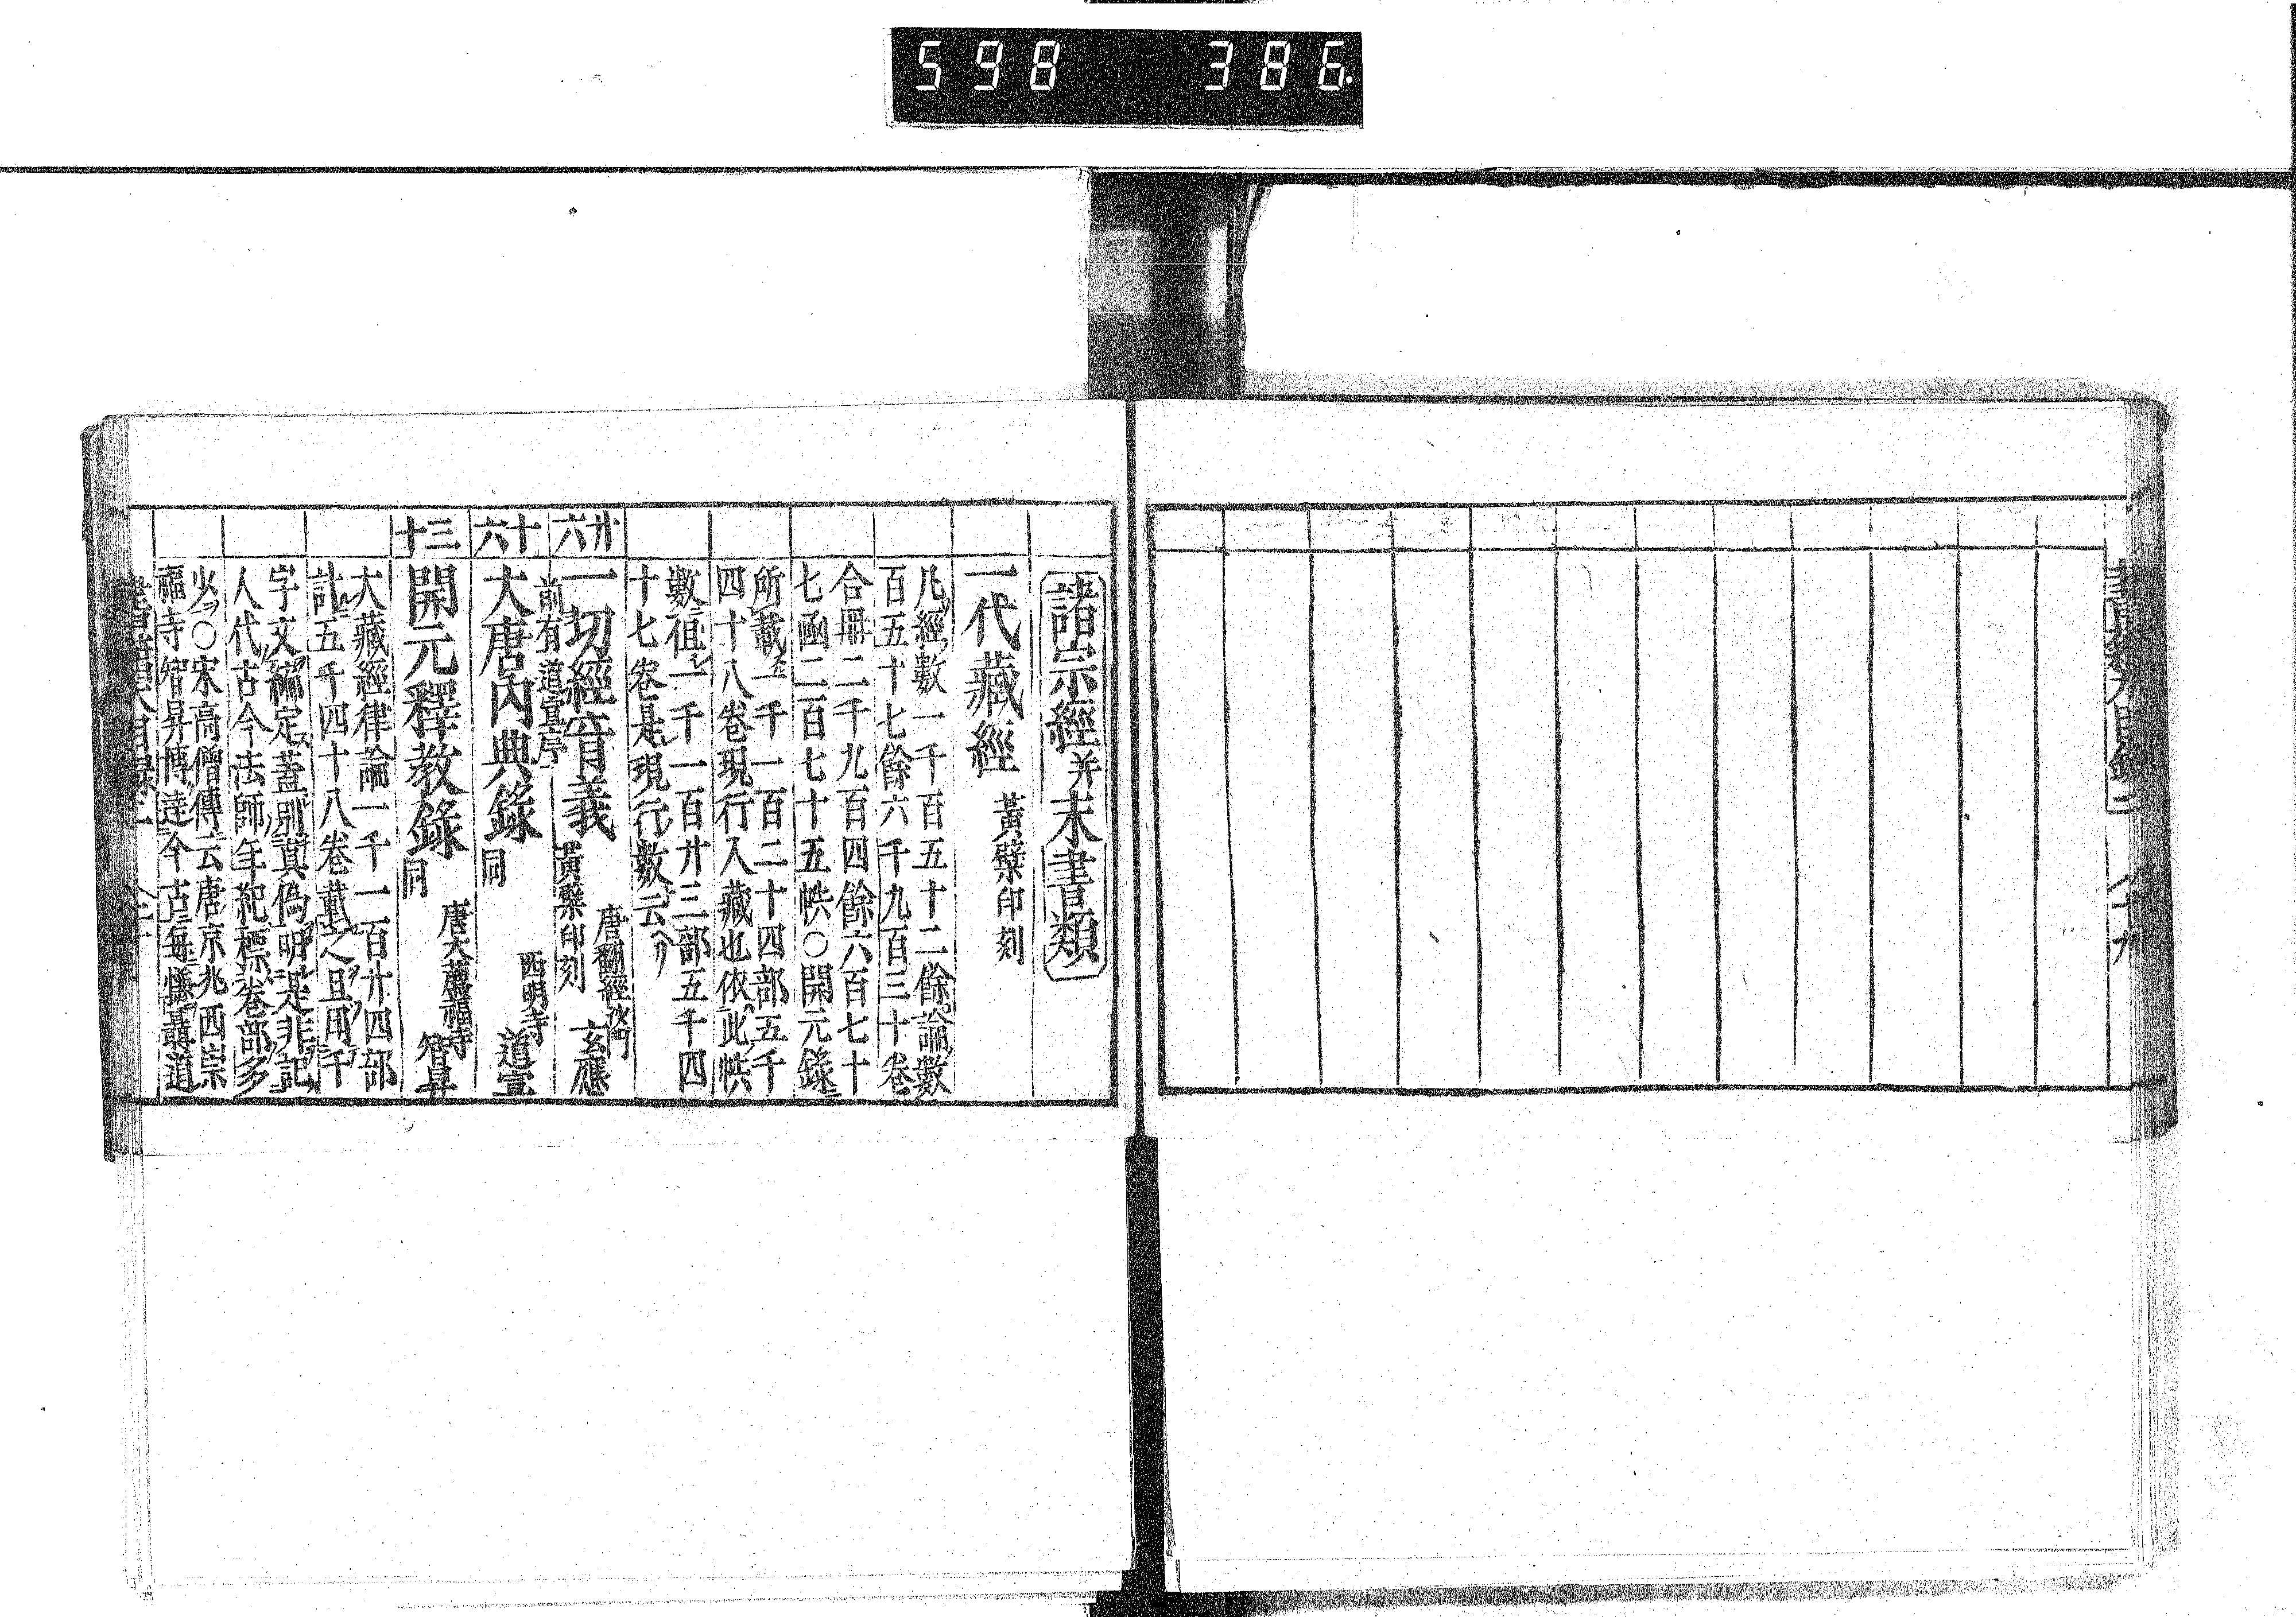 598 386.
諸宗經并末書類
一代藏經 黃檗印刻
凡經數一千百五十二餘論數
百五十七餘六千九百三十卷
合冊二千九百四餘六百七十
七凾二百七十五帙○開元錄
所載一千一百二十四部五千
四十八卷現行入藏也依此帙
數徂一千一百廿三部五千四
十七卷是現行數云ヘリ
廿六
一切經音義 黃檗印刻 唐翻經沙門 玄應
前有道宣序
十六
大唐內典錄 同 西明寺 道宣
三十
開元釋教錄 同 唐大薦福寺 智昇
大藏經律論一千一百廿四部
計五千四十八卷載之且用千
字文編定蓋別真偽明是非記
人代古今法師年紀標卷部多
少○宋高僧傳云唐京兆西崇
福寺智昇博達今古每慊聶道